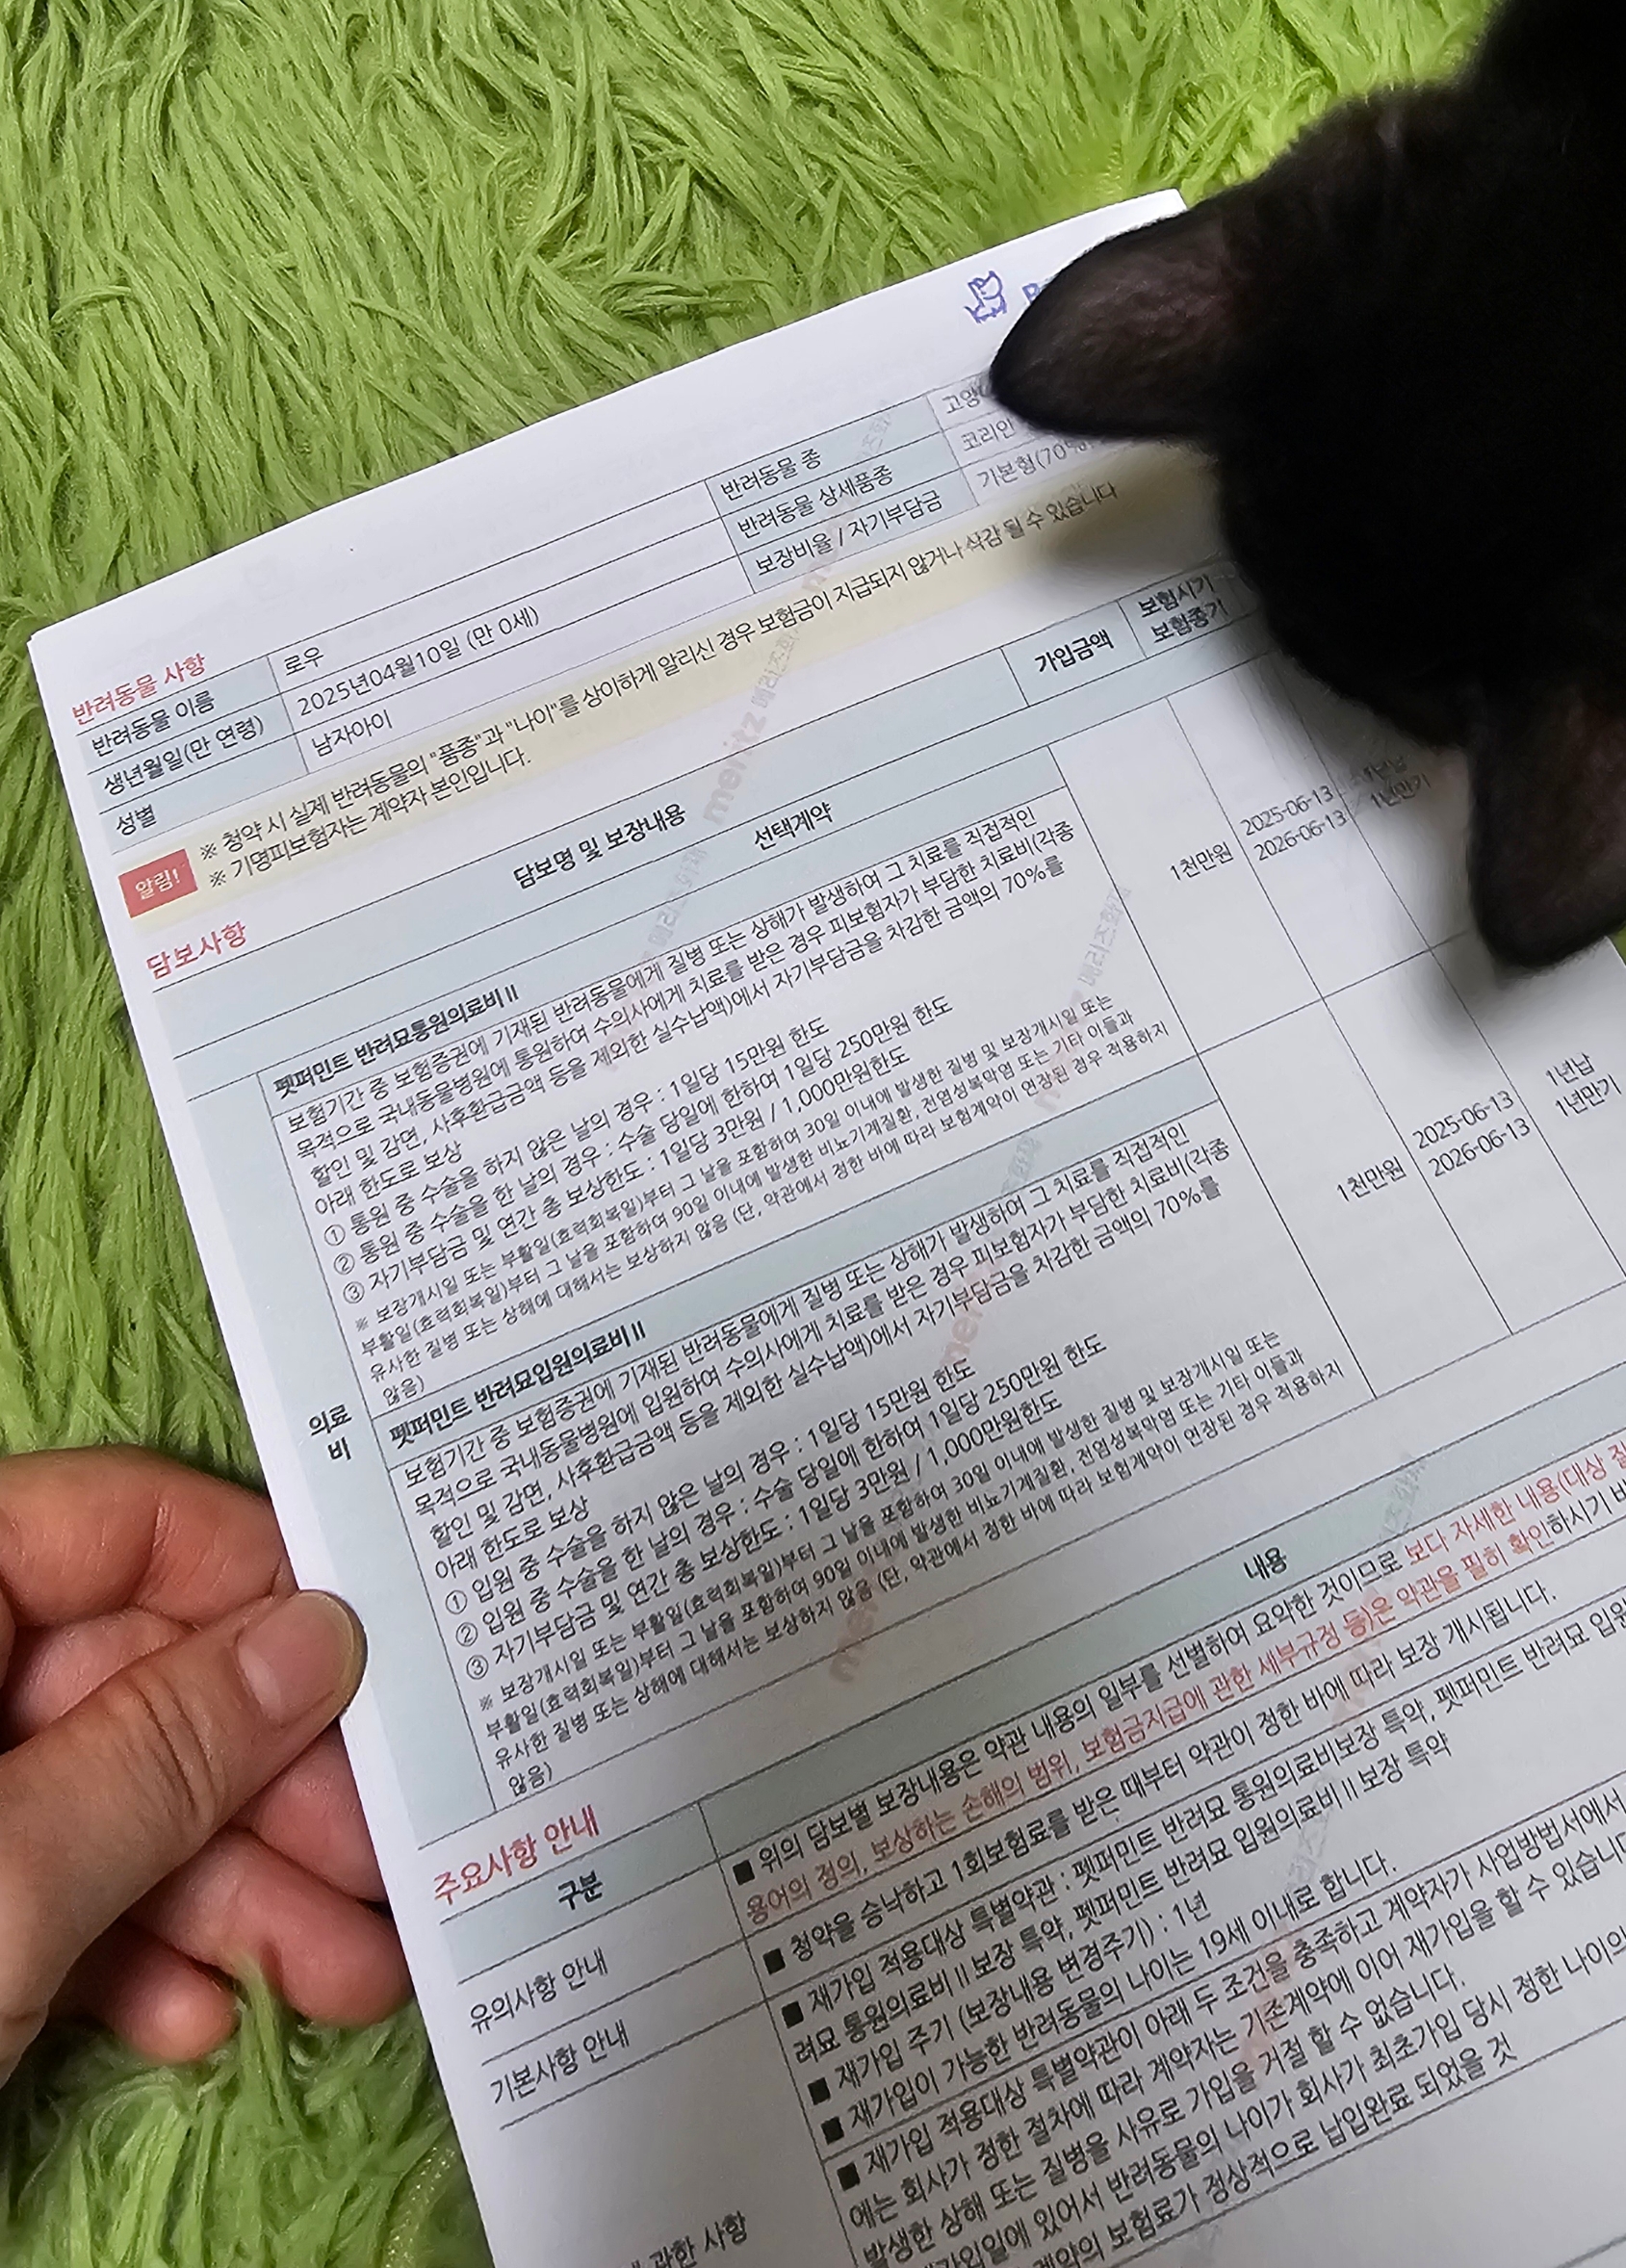 반려동물 사항
반려동물 이름 로우 반려동물 종
생년월일(만 연령) 2025년04월10일 (만 0세) 반려동물 상세품종 코리안
성별 남자아이 보장비율 / 자기부담금 기본형(70%
알림!
※ 청약 시 실제 반려동물의 "품종"과 "나이"를 상이하게 알리신 경우 보험금이 지급되지 않거나 삭감 될 수 있습니다
※ 기명피보험자는 계약자 본인입니다.
담보사항
담보명 및 보장내용 가입금액 보험시기
보험종기
선택계약
의료
비
펫퍼민트 반려묘통원의료비Ⅱ
보험기간 중 보험증권에 기재된 반려동물에게 질병 또는 상해가 발생하여 그 치료를 직접적인
목적으로 국내동물병원에 통원하여 수의사에게 치료를 받은 경우 피보험자가 부담한 치료비(각종
할인 및 감면, 사후환급금액 등을 제외한 실수납액)에서 자기부담금을 차감한 금액의 70%를
아래 한도로 보상
① 통원 중 수술을 하지 않은 날의 경우 : 1일당 15만원 한도
② 통원 중 수술을 한 날의 경우 : 수술 당일에 한하여 1일당 250만원 한도
③ 자기부담금 및 연간 총 보상한도 : 1일당 3만원 / 1,000만원한도
※ 보장개시일 또는 부활일(효력회복일)부터 그 날을 포함하여 30일 이내에 발생한 질병 및 보장개시일 또는
부활일(효력회복일)부터 그 날을 포함하여 90일 이내에 발생한 비뇨기계질환, 전염성복막염 또는 기타 이들과
유사한 질병 또는 상해에 대해서는 보상하지 않음 (단, 약관에서 정한 바에 따라 보험계약이 연장된 경우 적용하지
않음)
1천만원
2025-06-13
2026-06-13
1년납
1년만기
펫퍼민트 반려묘입원의료비Ⅱ
보험기간 중 보험증권에 기재된 반려동물에게 질병 또는 상해가 발생하여 그 치료를 직접적인
목적으로 국내동물병원에 입원하여 수의사에게 치료를 받은 경우 피보험자가 부담한 치료비(각종
할인 및 감면, 사후환급금액 등을 제외한 실수납액)에서 자기부담금을 차감한 금액의 70%를
아래 한도로 보상
① 입원 중 수술을 하지 않은 날의 경우 : 1일당 15만원 한도
② 입원 중 수술을 한 날의 경우 : 수술 당일에 한하여 1일당 250만원 한도
③ 자기부담금 및 연간 총 보상한도 : 1일당 3만원 / 1,000만원한도
※ 보장개시일 또는 부활일(효력회복일)부터 그 날을 포함하여 30일 이내에 발생한 질병 및 보장개시일 또는
부활일(효력회복일)부터 그 날을 포함하여 90일 이내에 발생한 비뇨기계질환, 전염성복막염 또는 기타 이들과
유사한 질병 또는 상해에 대해서는 보상하지 않음 (단, 약관에서 정한 바에 따라 보험계약이 연장된 경우 적용하지
않음)
1천만원
2025-06-13
2026-06-13
1년납
1년만기
주요사항 안내
구분 내용
유의사항 안내
■ 위의 담보별 보장내용은 약관 내용의 일부를 선별하여 요약한 것이므로 보다 자세한 내용(대상
용어의 정의, 보상하는 손해의 범위, 보험금지급에 관한 세부규정 등)은 약관을 필히 확인하시기
기본사항 안내
■ 청약을 승낙하고 1회보험료를 받은 때부터 약관이 정한 바에 따라 보장 개시됩니다.
■ 재가입 적용대상 특별약관 : 펫퍼민트 반려묘 통원의료비보장 특약, 펫퍼민트 반려묘 입원
려묘 통원의료비Ⅱ보장 특약, 펫퍼민트 반려묘 입원의료비Ⅱ보장 특약
■ 재가입 주기 (보장내용 변경주기) : 1년
■ 재가입이 가능한 반려동물의 나이는 19세 이내로 합니다.
■ 재가입 적용대상 특별약관이 아래 두 조건을 충족하고 계약자가 사업방법서에서
에는 회사가 정한 절차에 따라 계약자는 기존계약에 이어 재가입을 할 수 있습니다
발생한 상해 또는 질병을 사유로 가입을 거절 할 수 없습니다.
가입일에 있어서 반려동물의 나이가 회사가 최초가입 당시 정한 나이의
계약의 보험료가 정상적으로 납입완료 되었을 것
관한 사항